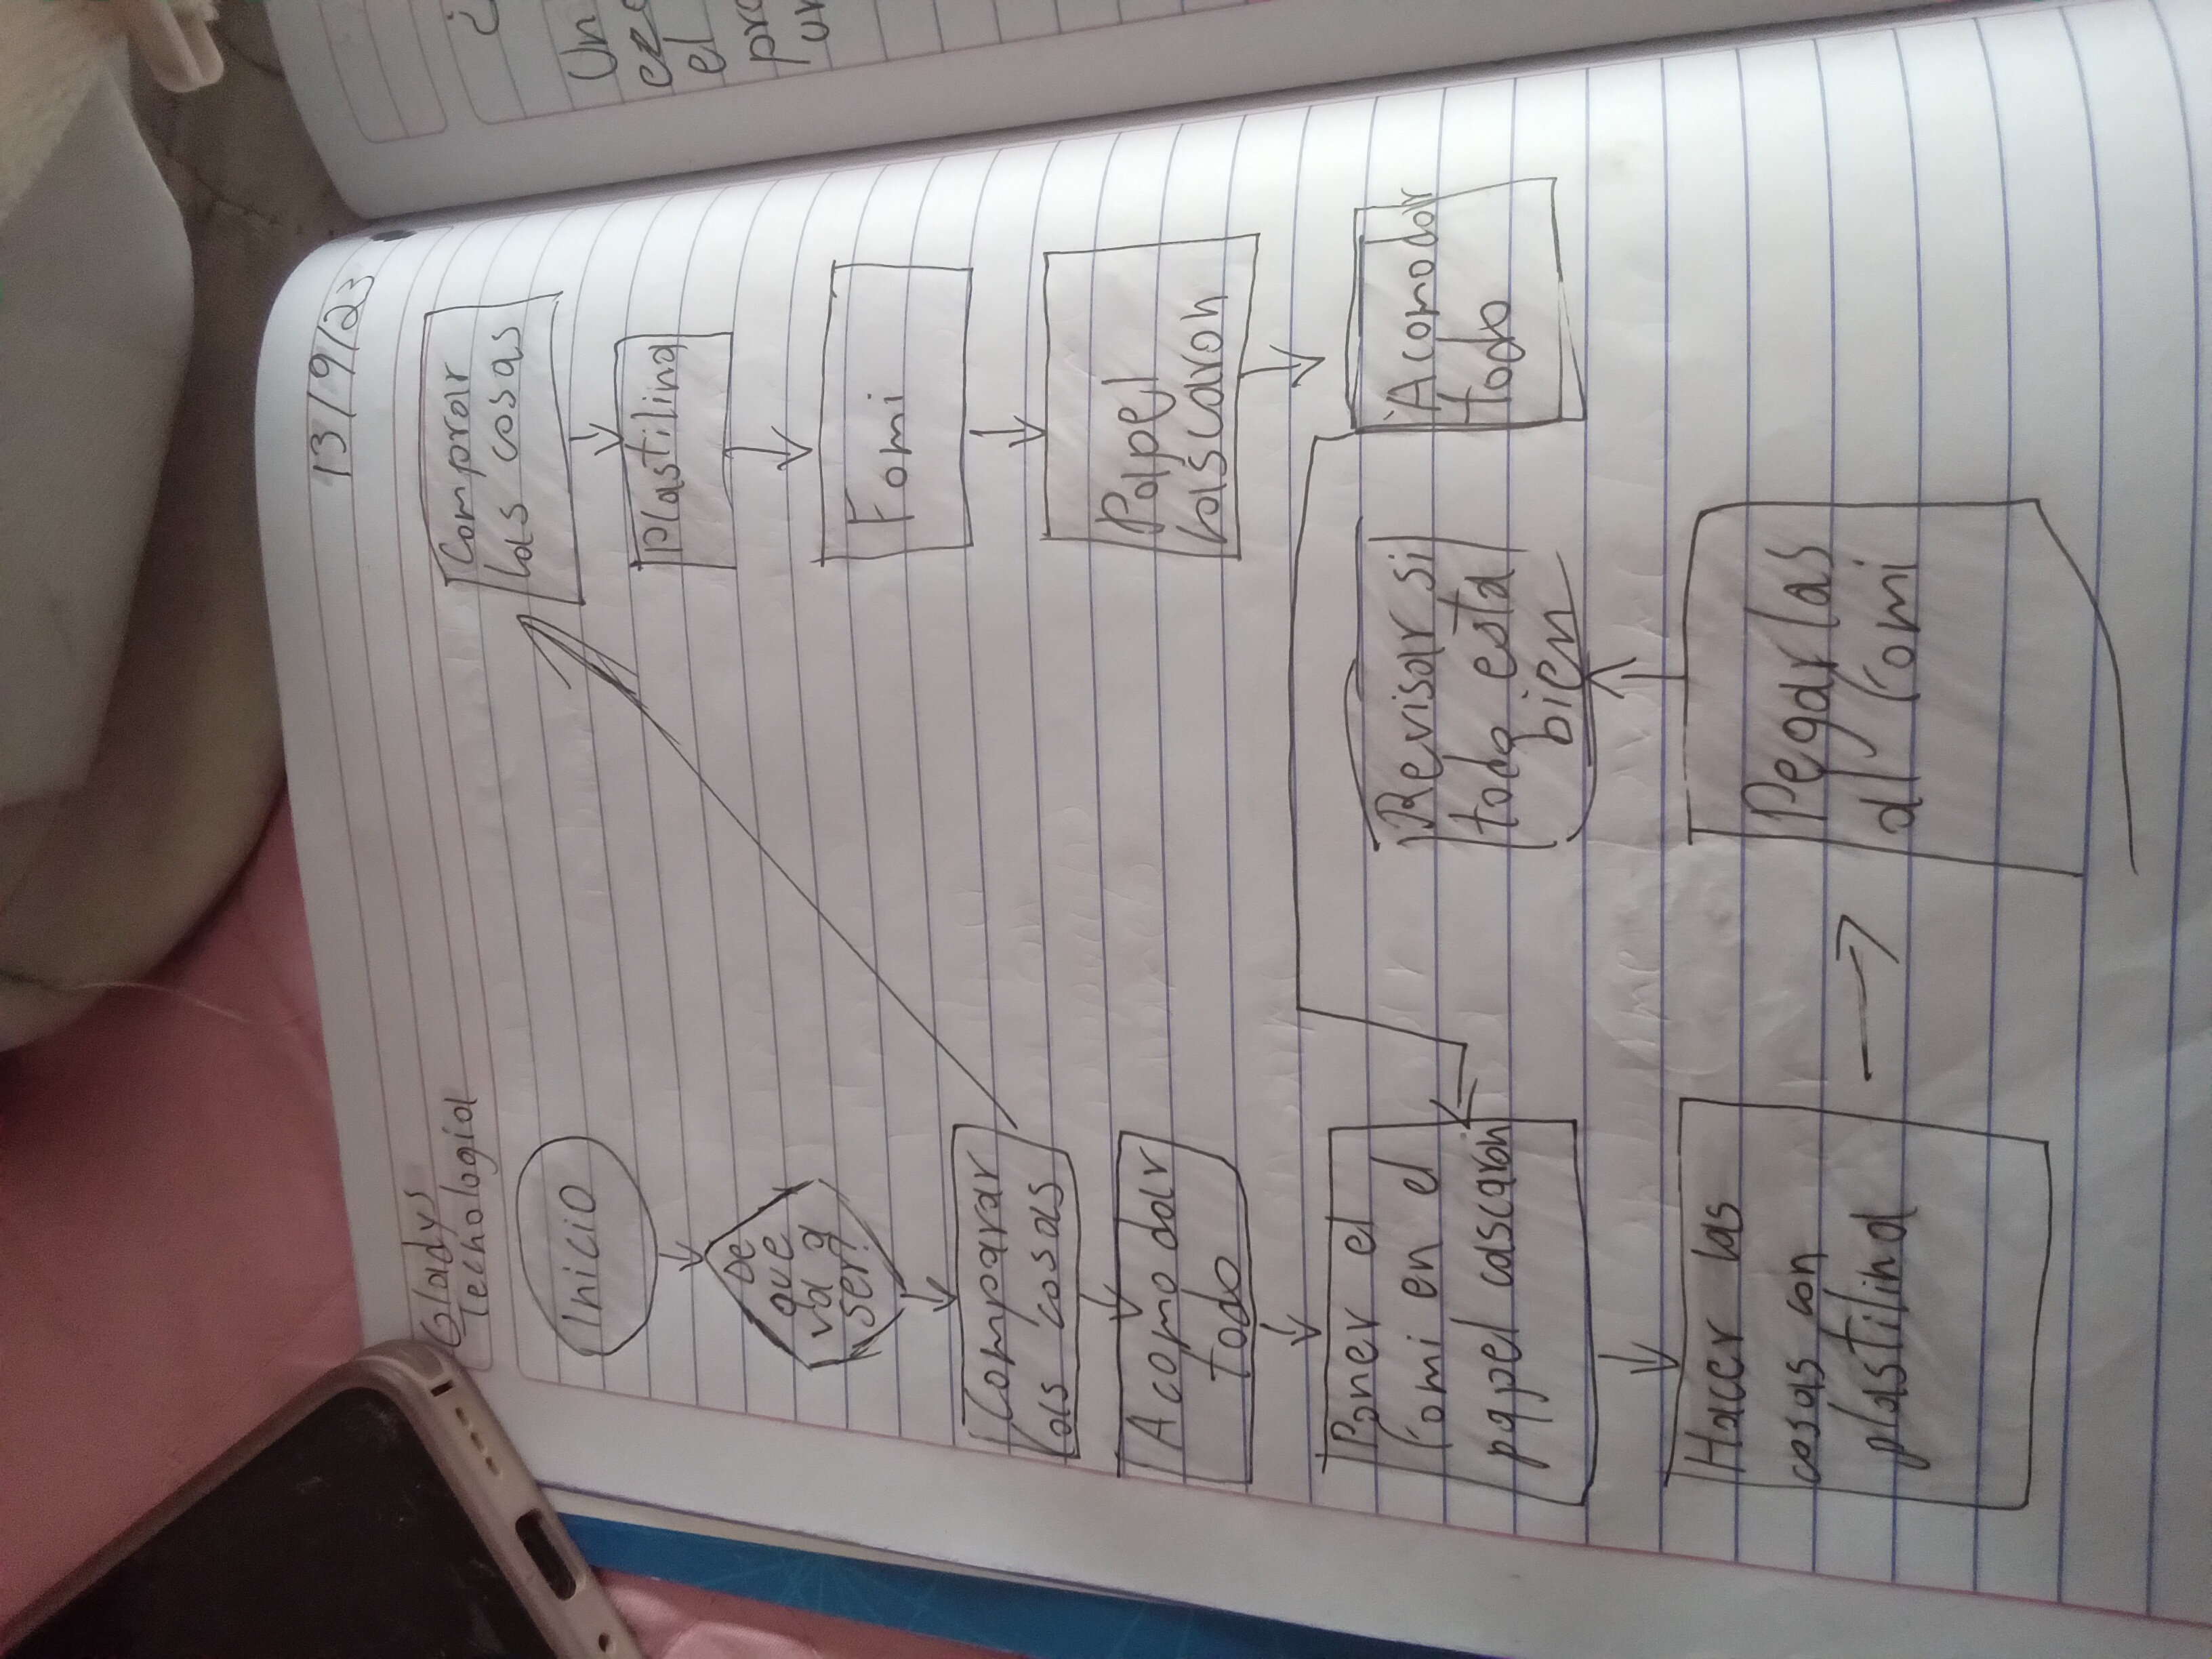 Gladys
Technologia
13/9/23
Inicio
De
que
va a
ser?
Comparar
las cosas
Acomodar
todo
Poner el
fomi en el
papel cascaron
Hacer las
cosas con
plastilina
Comprar
las cosas
Plastilina
Fomi
Papel
cascaron
Acomodar
todo
Revisar si
todo esta
bien
Pegar las
al fomi
¿
Un
el
pro
un